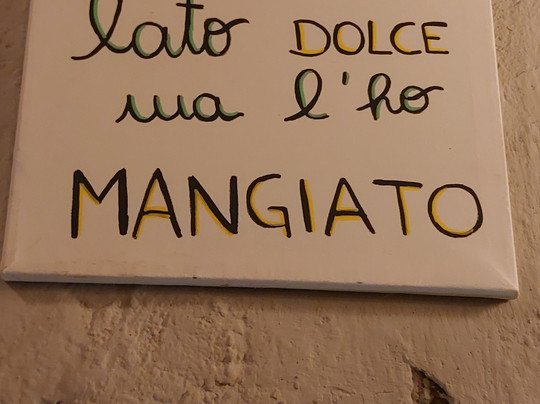 lato DOLCE
ma l'ho
MANGIATO